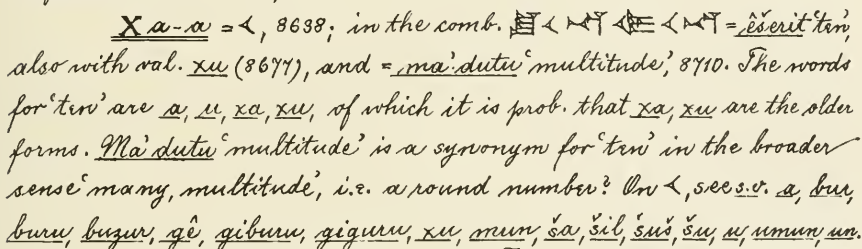 Xa-a = 𒌋, 8638; in the comb. 𒌋 𒌋 = êšerit 'ten,'
also with val. xu (8677), and = ma'dutu 'multitude,' 8710. The words
for 'ten' are a, u, xa, xu, of which it is prob. that xa, xu are the older
forms. Ma'dutu 'multitude' is a synonym for 'ten' in the broader
sense 'many, multitude,' i.e. a round number? On 𒌋, see s.v. a, bur,
buru, buzur, gê, giburu, giguru, xu, mun, ša, šil, šuš, šu, u umun un.